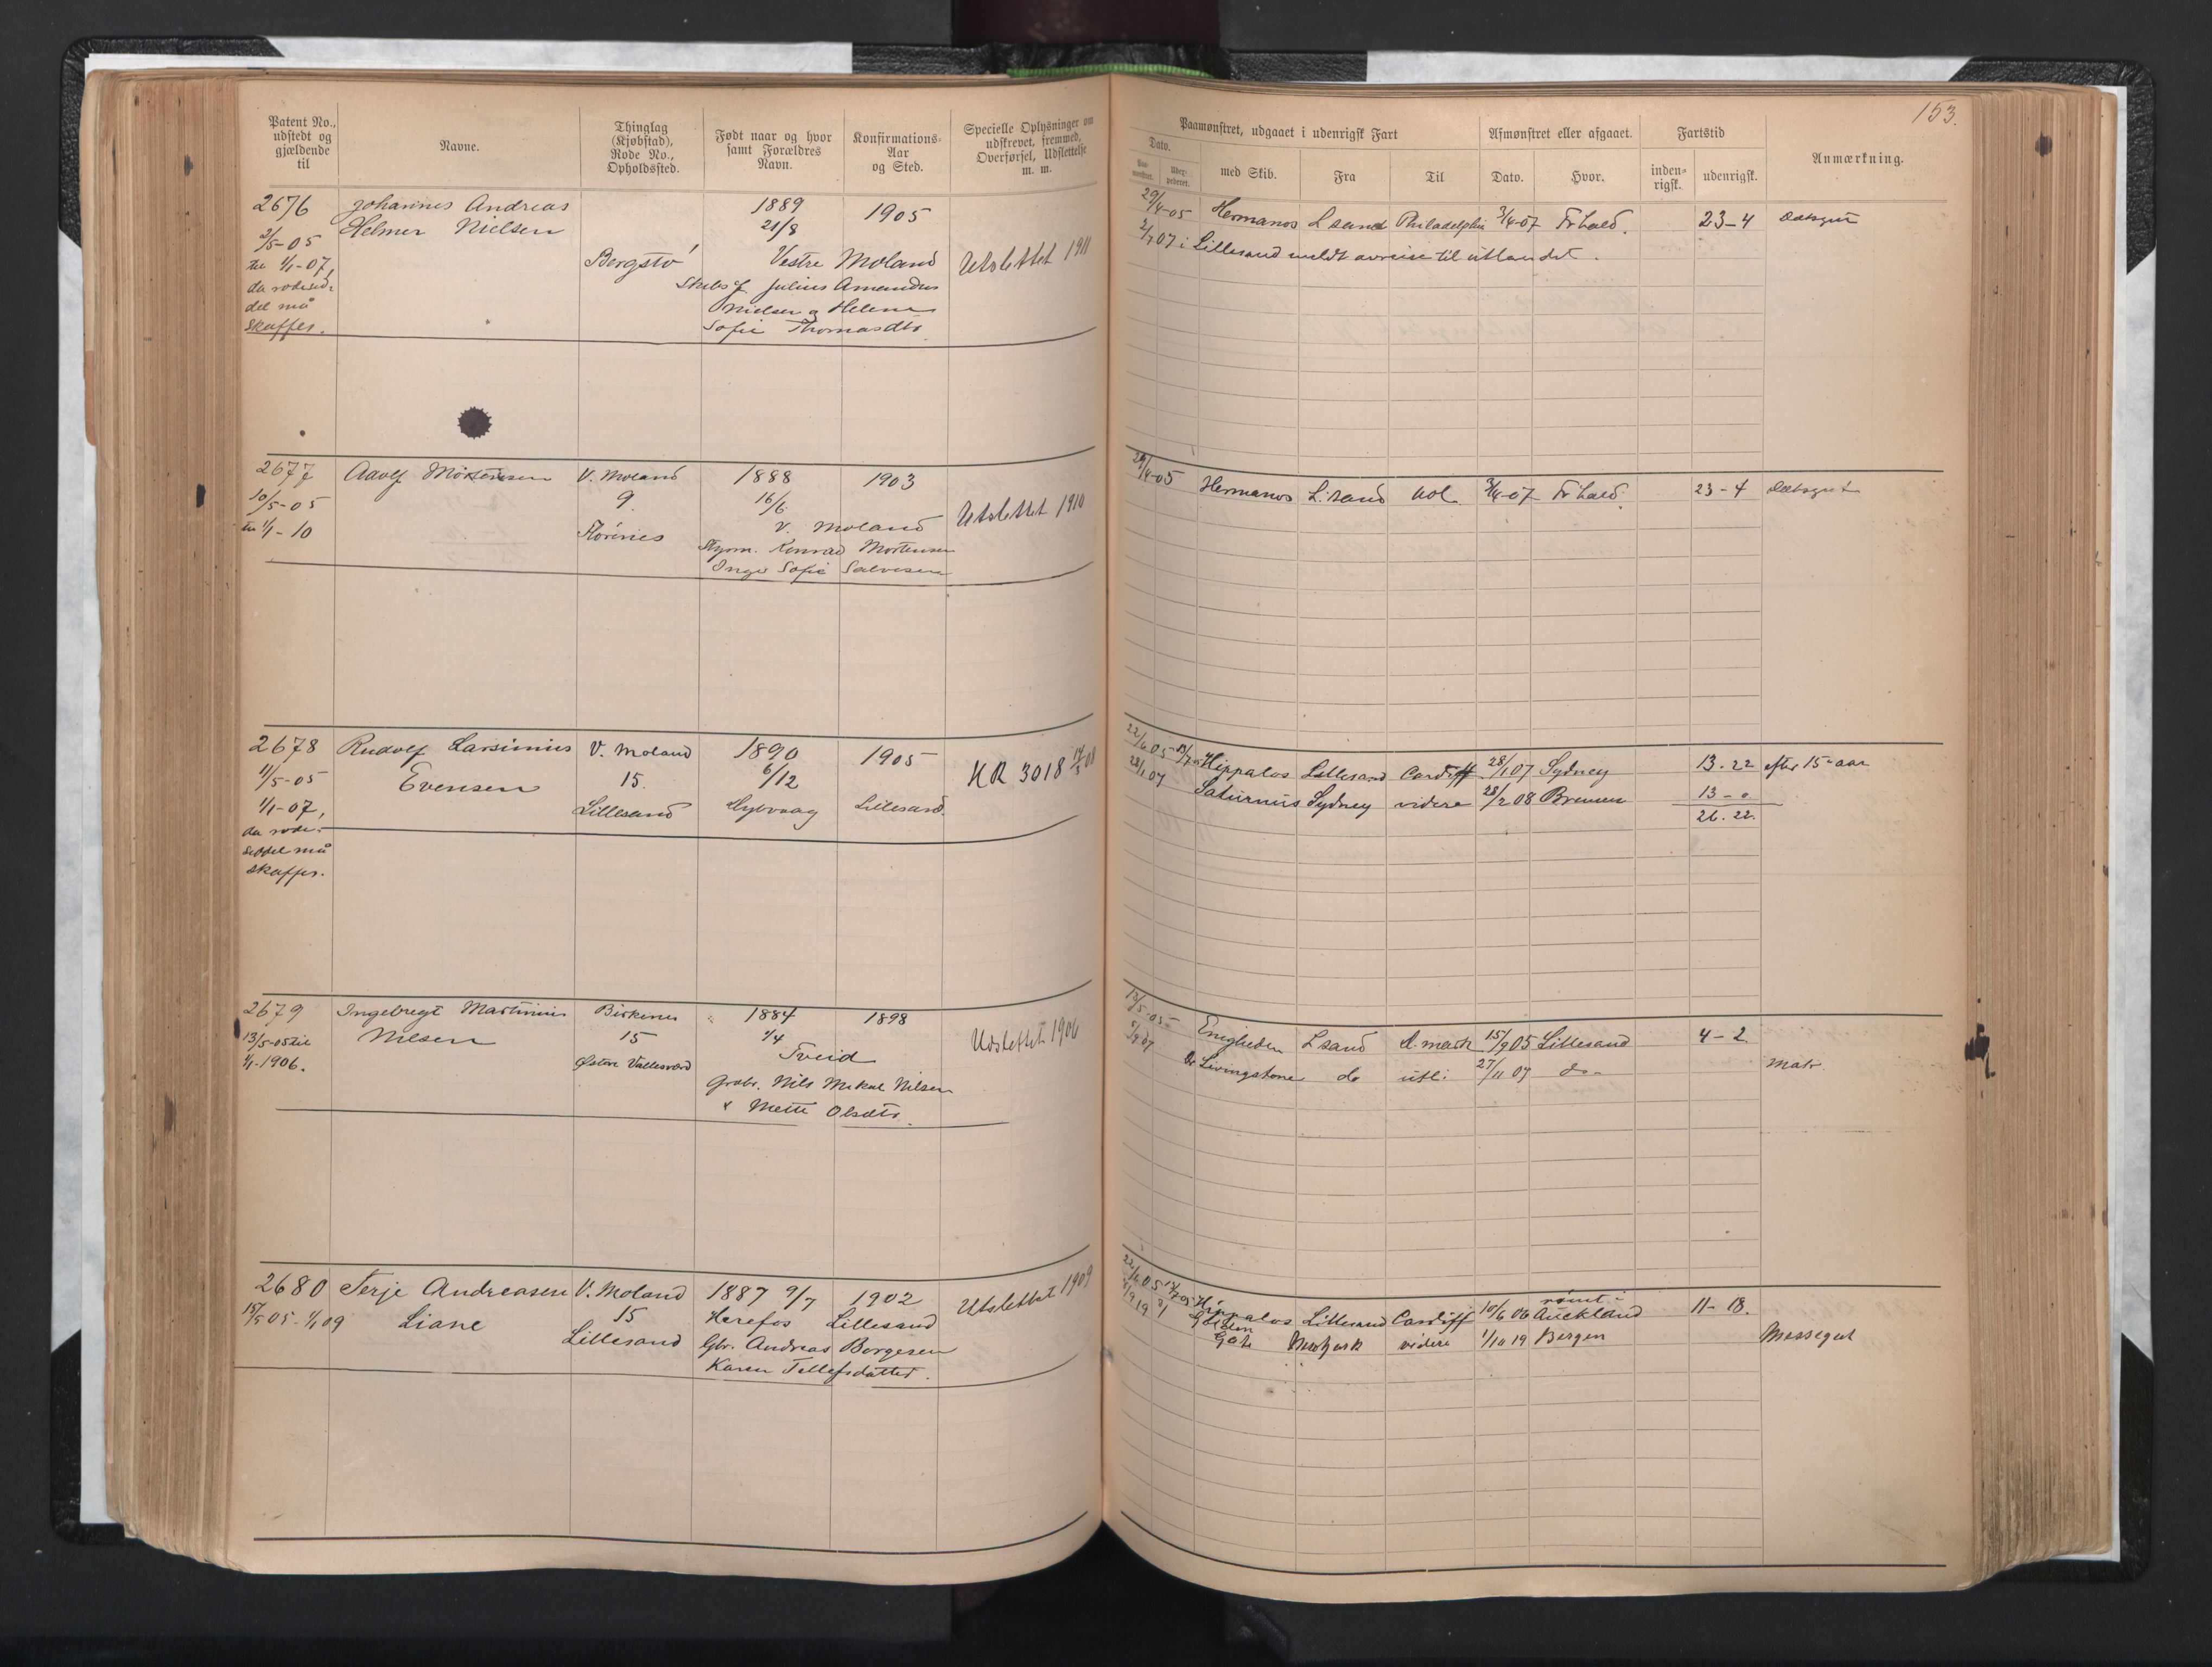 153.
Patent No., udstedt og gjældende til
Navne.
Thinglag (Kjøbstad), Rode No., Opholdssted.
Født naar og hvor samt Forældres Navn.
Konfirmations-Aar og Sted.
Specielle Oplysninger om udskrevet, fremmed, Overførsel, Udslettelse m. m.
Paamønstret, udgaaet i udenrigsk Fart
Dato.
med Skib.
Fra
Til
Afmønstret eller afgaaet.
Dato.
Hvor.
Fartstid
inden-rigsk.
udenrigsk.
Anmærkning.
2676 Johannes Andreas 1889 1905
2/5-05 Helmer Nielsen 21/8
til 1/1-07, Bergstø Vestre Moland Utslettet 1911
da rodesed- Skibsf Julius Amandus
del må Nielsen og Helene
skaffes. Sofie Thomasdtr.
29/4-05 Hermanos Lsand Philadelphia 3/4-07 Fr.hald. 23-4 Dæksgut
2/7 07 i Lillesand meldt avreise til utlandet.
2677 Adolf Mortensen V. Moland 1888 1903
10/5-05 9 16/6 Utslettet 1910
til 1/1-10 V. Moland
Styrm. Konrad Mortensen
Inge Sofie Salvesen
29/4-05 Hermanos L.sand 3/4-07 Fr.hald. 23-4 Dæksgut
2678 Rudolf Larsinius V. Moland 1890 1905 HR 3018
11/5-05 Evensen 15. 6/12
1/1-07, Lillesand Lillesand.
da rode-
seddel må
skaffes.
22/6 05 Hippalos Lillesand Cardiff 28/1 07 Sydney 13-22 efter 15 aar
28/1 07 Saturnus Sydney videre 28/2 08 Bremen 13-0
26.22.
2679 Ingebregt Martinius Birkenes 1884 1898
13/5-05 til Nilsen 15 1/4 Udslettet 1906
1/1-1906. Østre Vallesverd Tveid
Grdbr. Nils Mikal Nilsen
& Mette Olsdtr.
13/5-05 Enigheden Lsand d.mark 15/9 05 Lillesand 4-2.
Dr Livingstone do utl. 27/11 07 do Matr.
2680 Terje Andreasen V. Moland 1887 9/7 1902 Utslettet 1909
15/5 05-1/1 09 Liane 15 Herefos Lillesand
Lillesand Gbr. Andreas Borgesen
Karen Tellefsdatter.
22/6 05 Hippalos Lillesand Cardiff 10/6 06 rømt i Auckland 11-18.
Golden Gate Newyork videre 1/10 19 Bergen Messegut